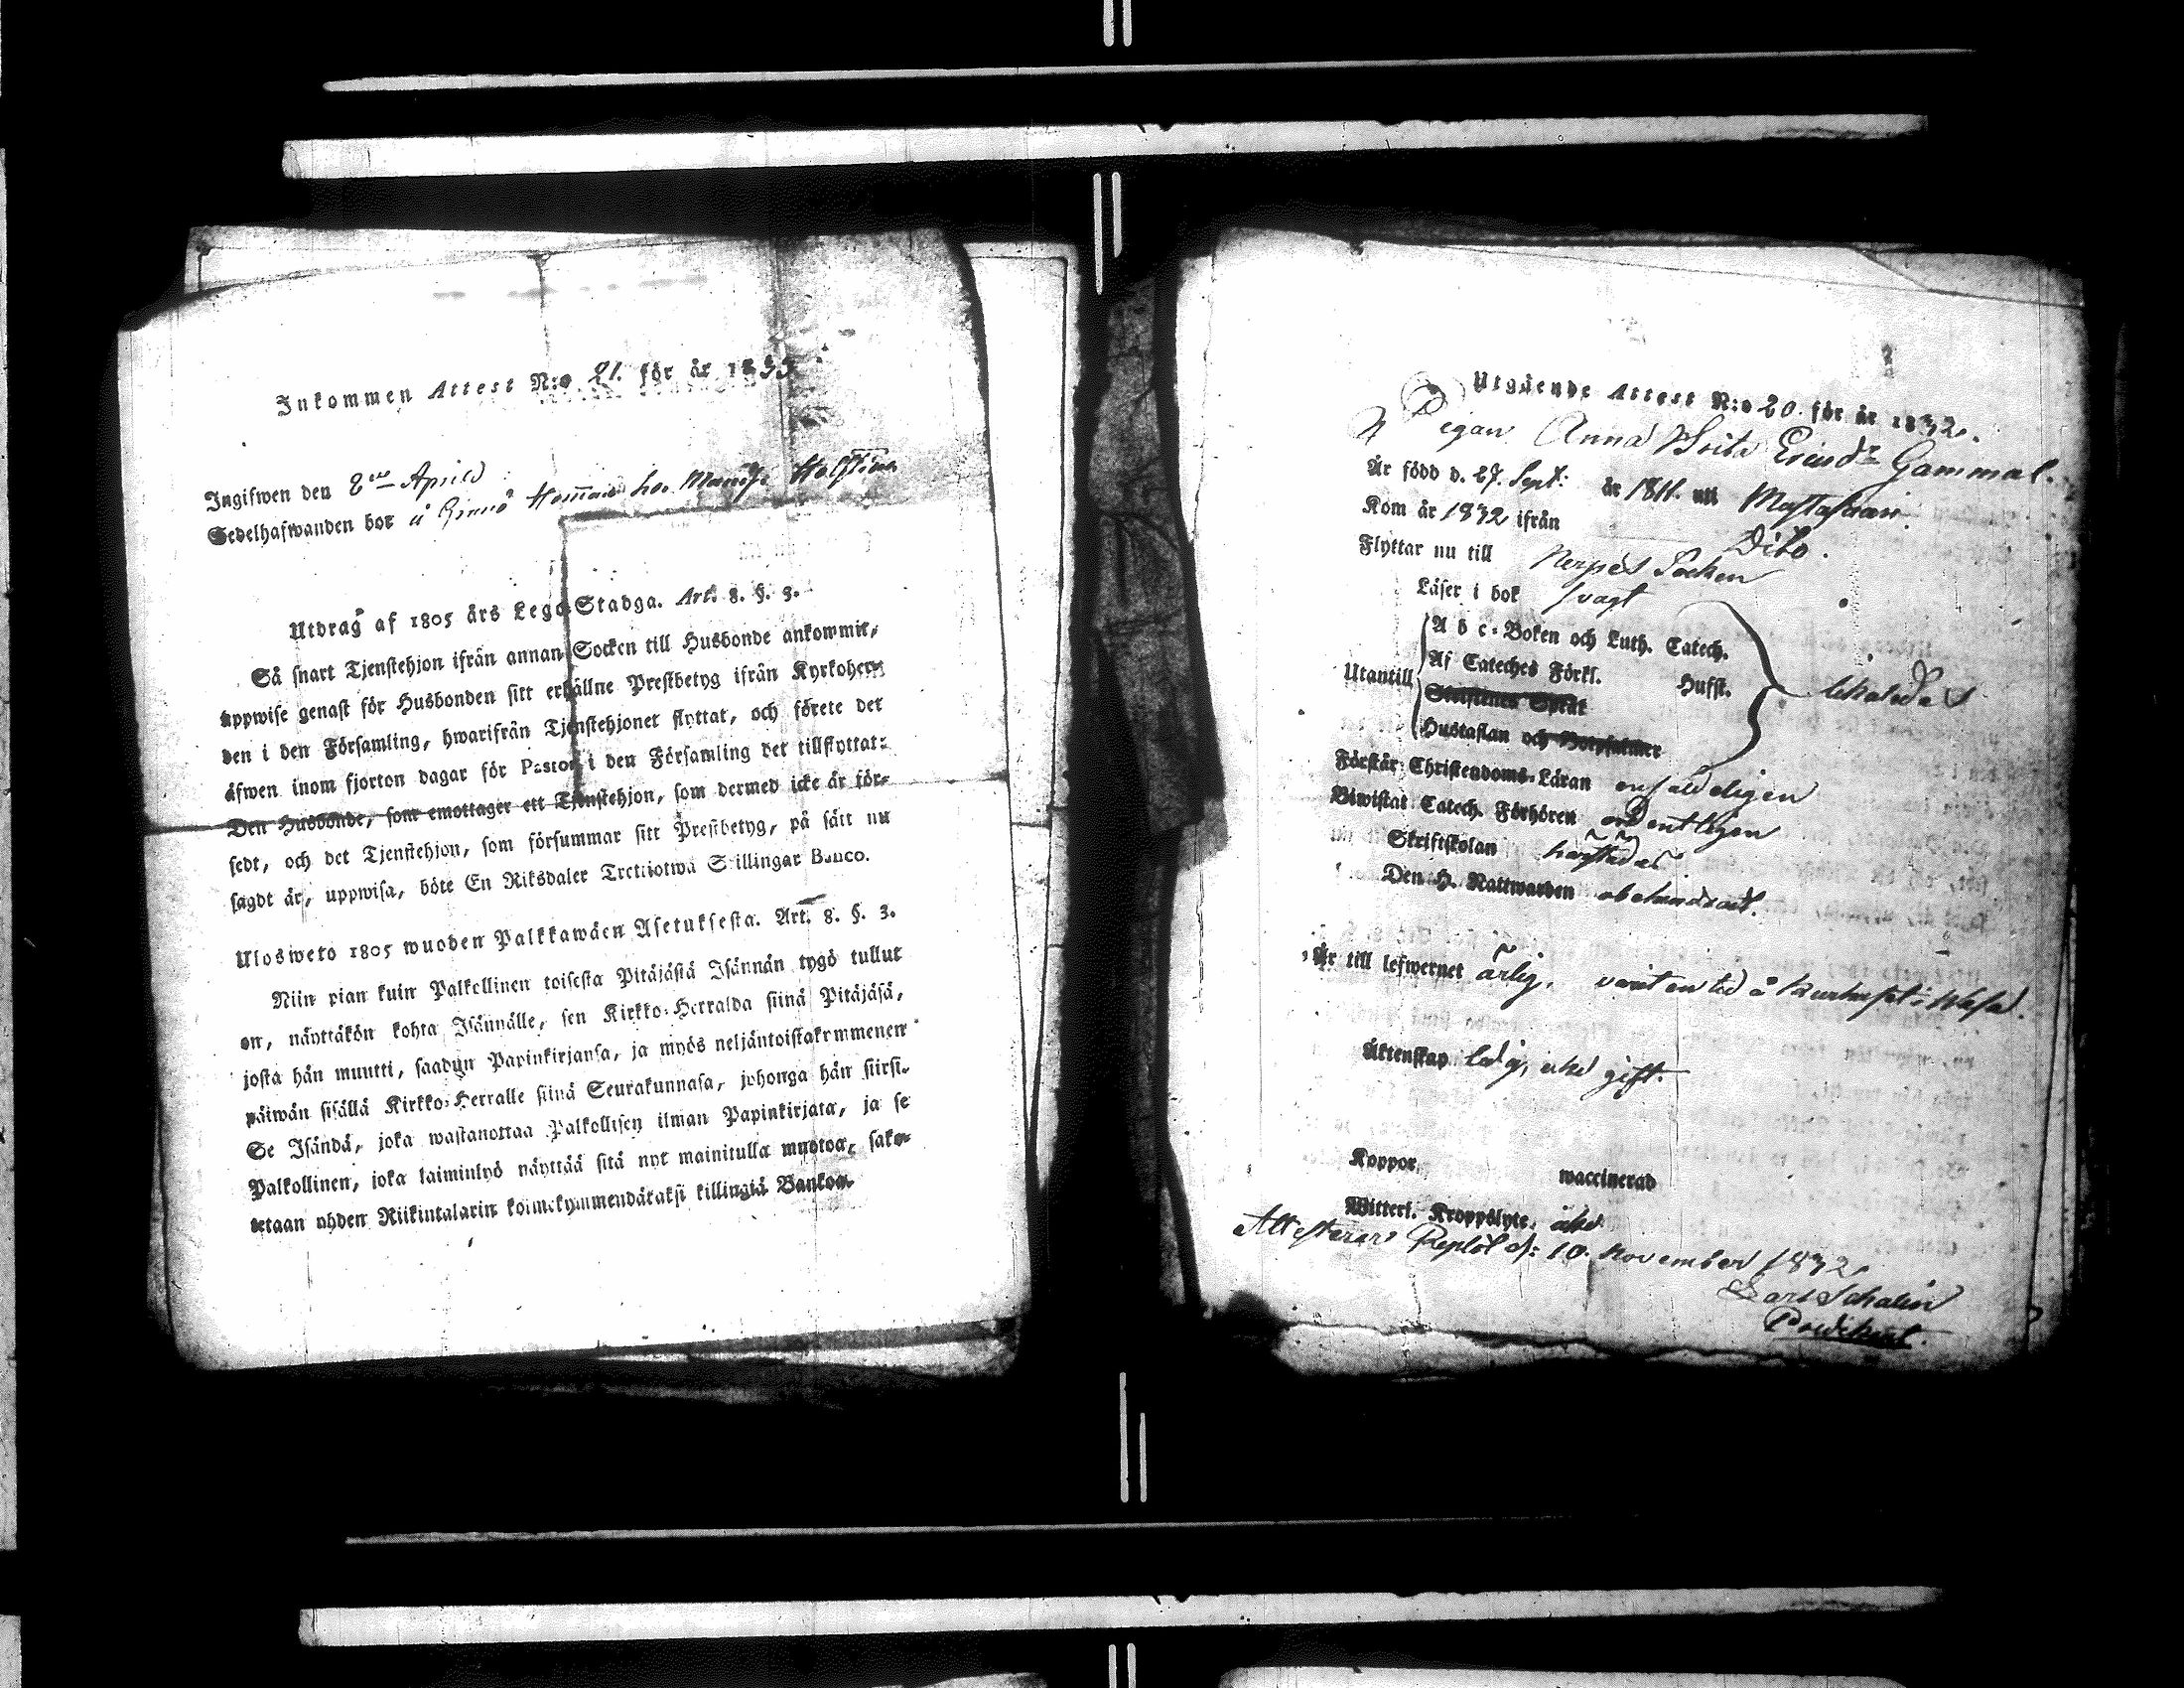 Inkommen Attest N:o 21. för år 1833
Ingifwen den 2 April
Sedelhafwanden bor å
Utdrag af 1805 års Lego-Stadga. Art. 8. §. 3.
Så snart Tjenstehjon ifrån annan Socken till Husbonde ankommit,
uppwise genast för Husbonden sitt erhållne Prestbetyg ifrån Kyrkoher-
den i den Församling, hwarifrån Tjenstehjonet flyttat, och förete det
äfwen inom fjorton dagar för Pastor i den Församling det tillflyttat:
Den Husbonde, som emottager ett Tjenstehjon, som dermed icke är för-
sedt, och det Tjenstehjon, som försummar sitt Prestbetyg, på sätt nu
sagdt är, uppwisa, böte En Riksdaler Trettiotwå Skillingar Banco.
Ulosweto 1805 wuoden Palkkawäen Asetuksesta. Art. 8. §. 3.
Niin pian kuin Palkollinen toisesta Pitäjästä Isännän tygö tullut
on, näyttäkön kohta Isännälle, sen Kirkko-Herralda siinä Pitäjäsä,
josta hän muutti, saadun Papinkirjansa, ja myös neljäntoistakymmenen
päiwän sisällä Kirkko-Herralle siinä Seurakunnasa, johonga hän siirsi.
Se Isändä, joka wastanottaa Palkollisen ilman Papinkirjata, ja se
Palkollinen, joka laiminlyö näyttää sitä nyt mainitulla muotoa, sako-
tetaan yhden Riikintalarin kolmekymmendäkaksi killingiä Bankoa.
Utgående Attest N:o 20. för år 1832.
Pigan Anna Brita Ersdr Gammal.
Är född d. 27 Sept: år 1811. uti Mustasaari
Kom år 1832 ifrån Dito.
Flyttar nu till Nerpes Socken
Läser i bok svagt
Utantill
A b c-Boken och Luth. Catech.
Af Cateches Förkl. Hufst.
Hustaflan och
Förstår Christendoms-Läran enfaldeligen
Biwistat Catech. Förhören ordentligen
Skriftskolan
Den H. Nattwarden obehindrad.
Är till lefwernet ärlig, varit en tid å Kurhuset i Wasa.
Äktenskap ledig, icke gift.
Koppor, waccinerad
Witterl. Kroppslyte, icke
Attesterar Replöt d: 10 November 1832
Lars Schalin
Predikant.